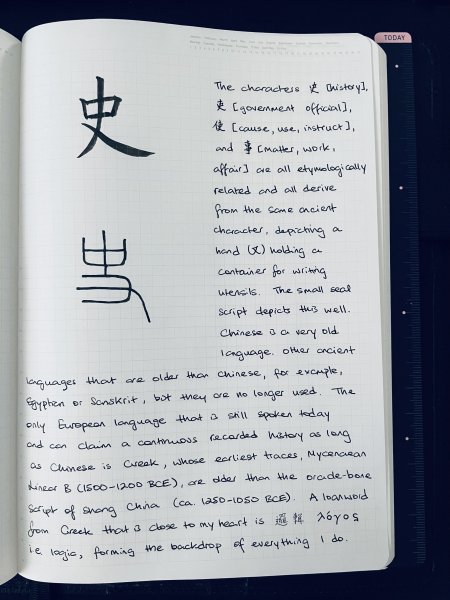 TODAY
史
The characters 史 [history],
吏 [government official],
使 [cause, use, instruct],
and 事 [matter, work,
affair] are all etymologically
related and all derive
from the same ancient
character, depicting a
hand (又) holding a
container for writing
utensils. The small seal
script depicts this well.
Chinese is a very old
language. Other ancient
languages that are older than Chinese, for example,
Egypten or Sanskrit, but they are no longer used. The
only European language that is still spoken today
and can claim a continuous recorded history as long
as Chinese is Greek, whose earliest traces, Mycenaean
Linear B (1500–1200 BCE), are older than the oracle-bone
script of Shang China (ca. 1250–1050 BCE). A loanword
from Greek that is close to my heart is 邏輯 λόγος
i.e. logic, forming the backdrop of everything I do.